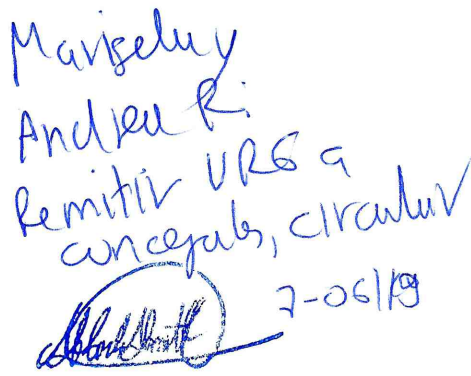 Marisel y
Andrea R.
Remitir URG a
concejales, circular
7-06/19